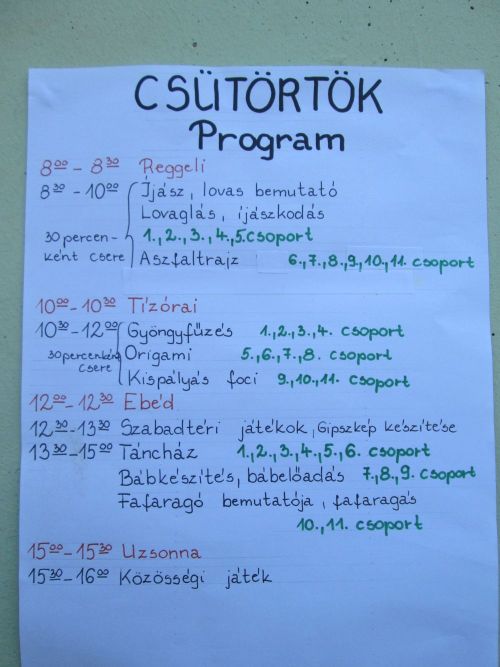 CSÜTÖRTÖK
Program
8⁰⁰ - 8³⁰ Reggeli
8³⁰ - 10⁰⁰ Íjász, lovas bemutató
Lovaglás, íjászkodás
30 percen- 1.,2.,3.,4.,5.csoport
ként csere Aszfaltrajz 6.,7.,8.,9.,10.,11. csoport
10⁰⁰ - 10³⁰ Tízórai
10³⁰ - 12⁰⁰ Gyöngyfűzés 1.,2.,3.,4. csoport
30 percenként Origami 5.,6.,7.,8. csoport
csere
Kispályás foci 9.,10.,11. csoport
12⁰⁰ - 12³⁰ Ebéd
12³⁰ - 13³⁰ Szabadtéri játékok, Gipszkép készítése
13³⁰ - 15⁰⁰ Táncház 1.,2.,3.,4.,5.,6. csoport
Bábkészítés, bábelőadás 7.,8.,9. csoport
Fafaragó bemutatója, fafaragás
10., 11. csoport
15⁰⁰ - 15³⁰ Uzsonna
15³⁰ - 16⁰⁰ Közösségi játék